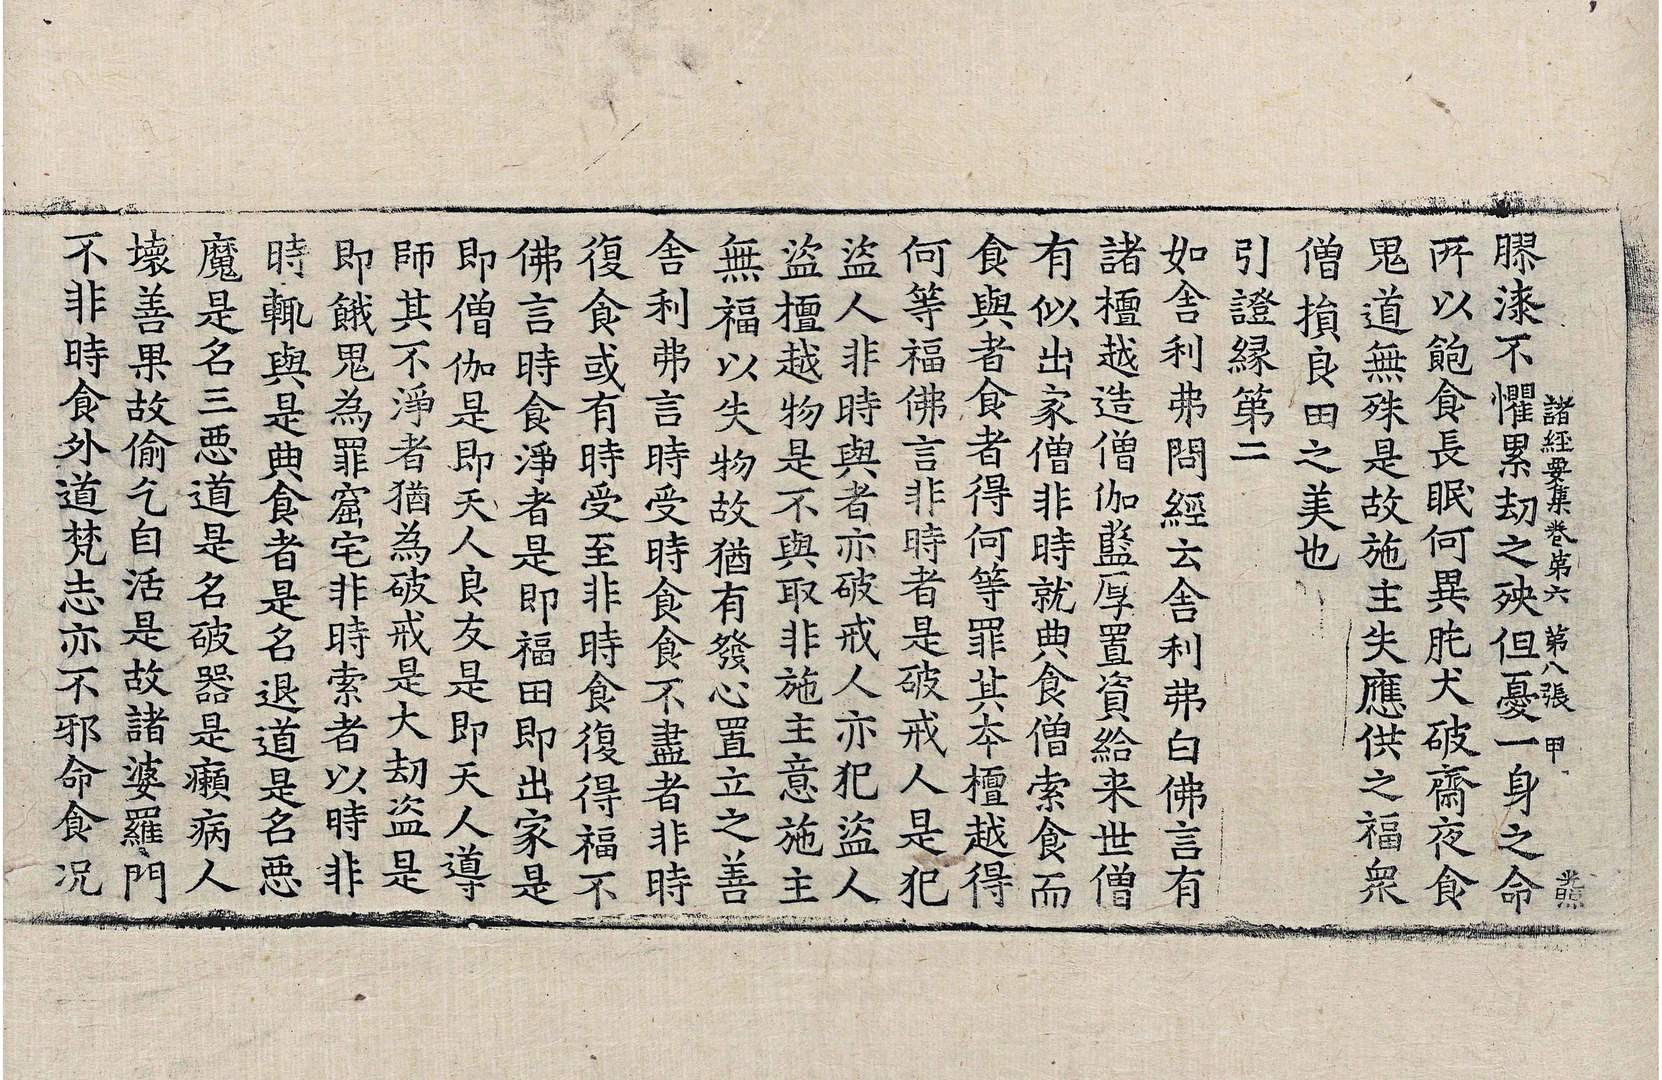 諸經要集卷第六 第八張 甲
膠漆不懼累劫之殃但憂一身之命
所以飽食長眠何異肫犬破齋夜食
鬼道無殊是故施主失應供之福衆
僧損良田之美也
引證緣第二
如舍利弗問經云舍利弗白佛言有
諸檀越造僧伽藍厚置資給来世僧
有似出家僧非時就典食僧索食而
食與者食者得何等罪其夲檀越得
何等福佛言非時者是破戒人是犯
盜人非時與者亦破戒人亦犯盜人
盜檀越物是不與取非施主意施主
無福以失物故猶有發心置立之善
舍利弗言時受時食食不盡者非時
復食或有時受至非時食復得福不
佛言時食淨者是即福田即出家是
即僧伽是即天人良友是即天人導
師其不淨者猶為破戒是大劫盜是
即餓鬼為罪窟宅非時索者以時非
時輒與是典食者是名退道是名惡
魔是名三惡道是名破器是癩病人
壞善果故偷乞自活是故諸婆羅門
不非時食外道梵志亦不邪命食况